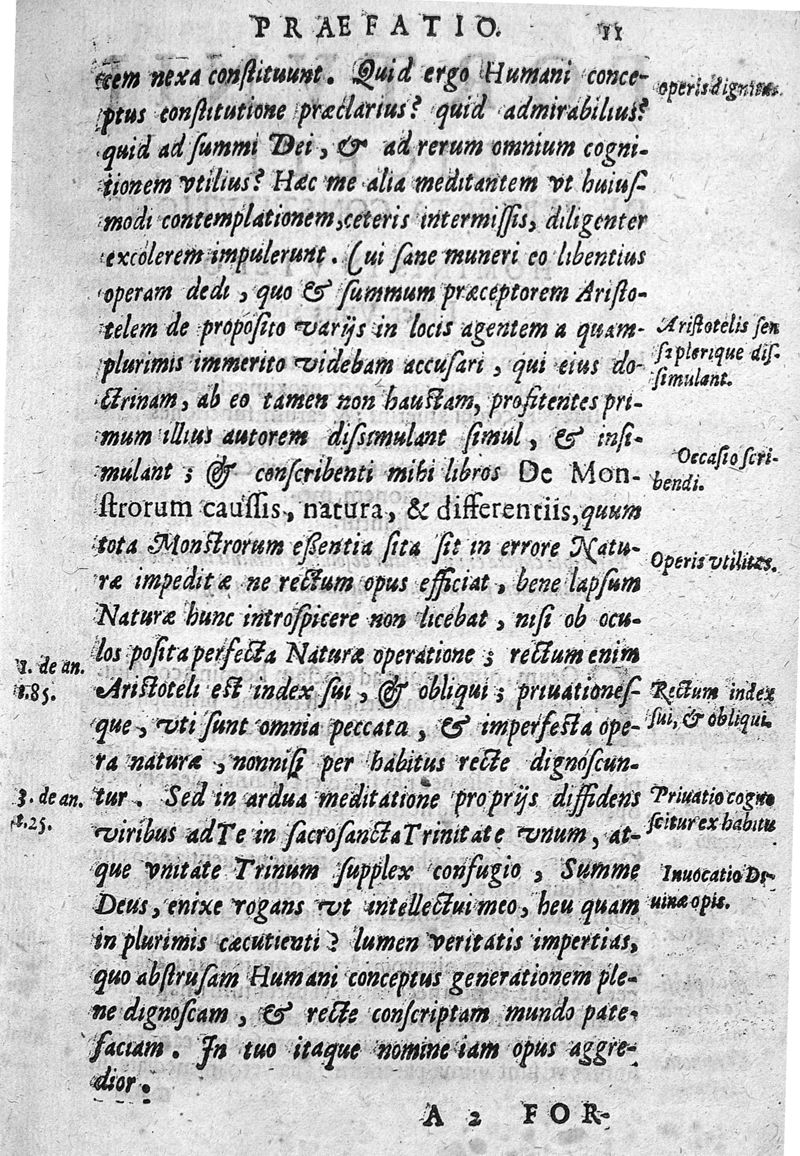 PRAEFATIO. 11
cem nexa constituunt. Quid ergo Humani conce-
ptus constitutione præclarius? quid admirabilius?
quid ad summi Dei, & ad rerum omnium cogni-
tionem vtilius? Hæc me alia meditantem vt huius-
modi contemplationem, ceteris intermissis, diligenter
excolerem impulerunt. Cui sane muneri eo libentius
operam dedi, quo & summum præceptorem Aristo-
telem de proposito varijs in locis agentem a quam-
plurimis immerito videbam accusari, qui eius do-
ctrinam, ab eo tamen non haustam, profitentes pri-
mum illius autorem dissimulant simul, & insi-
mulant; & conscribenti mihi libros De Mon-
strorum caussis, natura, & differentiis, quum
tota Monstrorum essentia sita sit in errore Natu-
ræ impeditæ ne rectum opus efficiat, bene lapsum
Naturæ hunc introspicere non licebat, nisi ob ocu-
los posita perfecta Naturæ operatione; rectum enim
Aristoteli est index sui, & obliqui; priuationes-
que, vti sunt omnia peccata, & imperfecta ope-
ra naturæ, nonnisi per habitus recte dignoscun-
tur. Sed in ardua meditatione proprijs diffidens
viribus ad Te in sacrosancta Trinitate vnum, at-
que vnitate Trinum supplex confugio, Summe
Deus, enixe rogans vt intellectui meo, heu quam
in plurimis cæcutienti? lumen veritatis impertias,
quo abstrusam Humani conceptus generationem ple-
ne dignoscam, & recte conscriptam mundo pate-
faciam. In tuo itaque nomine iam opus aggre-
dior.
A 2 FOR-
operis dignitas.
Aristotelis sen
sa plerique dis-
simulant.
Occasio scri-
bendi.
Operis vtilitas.
Rectum index
sui, & obliqui.
Priuatio cogno
scitur ex habitu
Inuocatio Di-
uinæ opis.
1. de an.
t.85.
3. de an.
t.25.